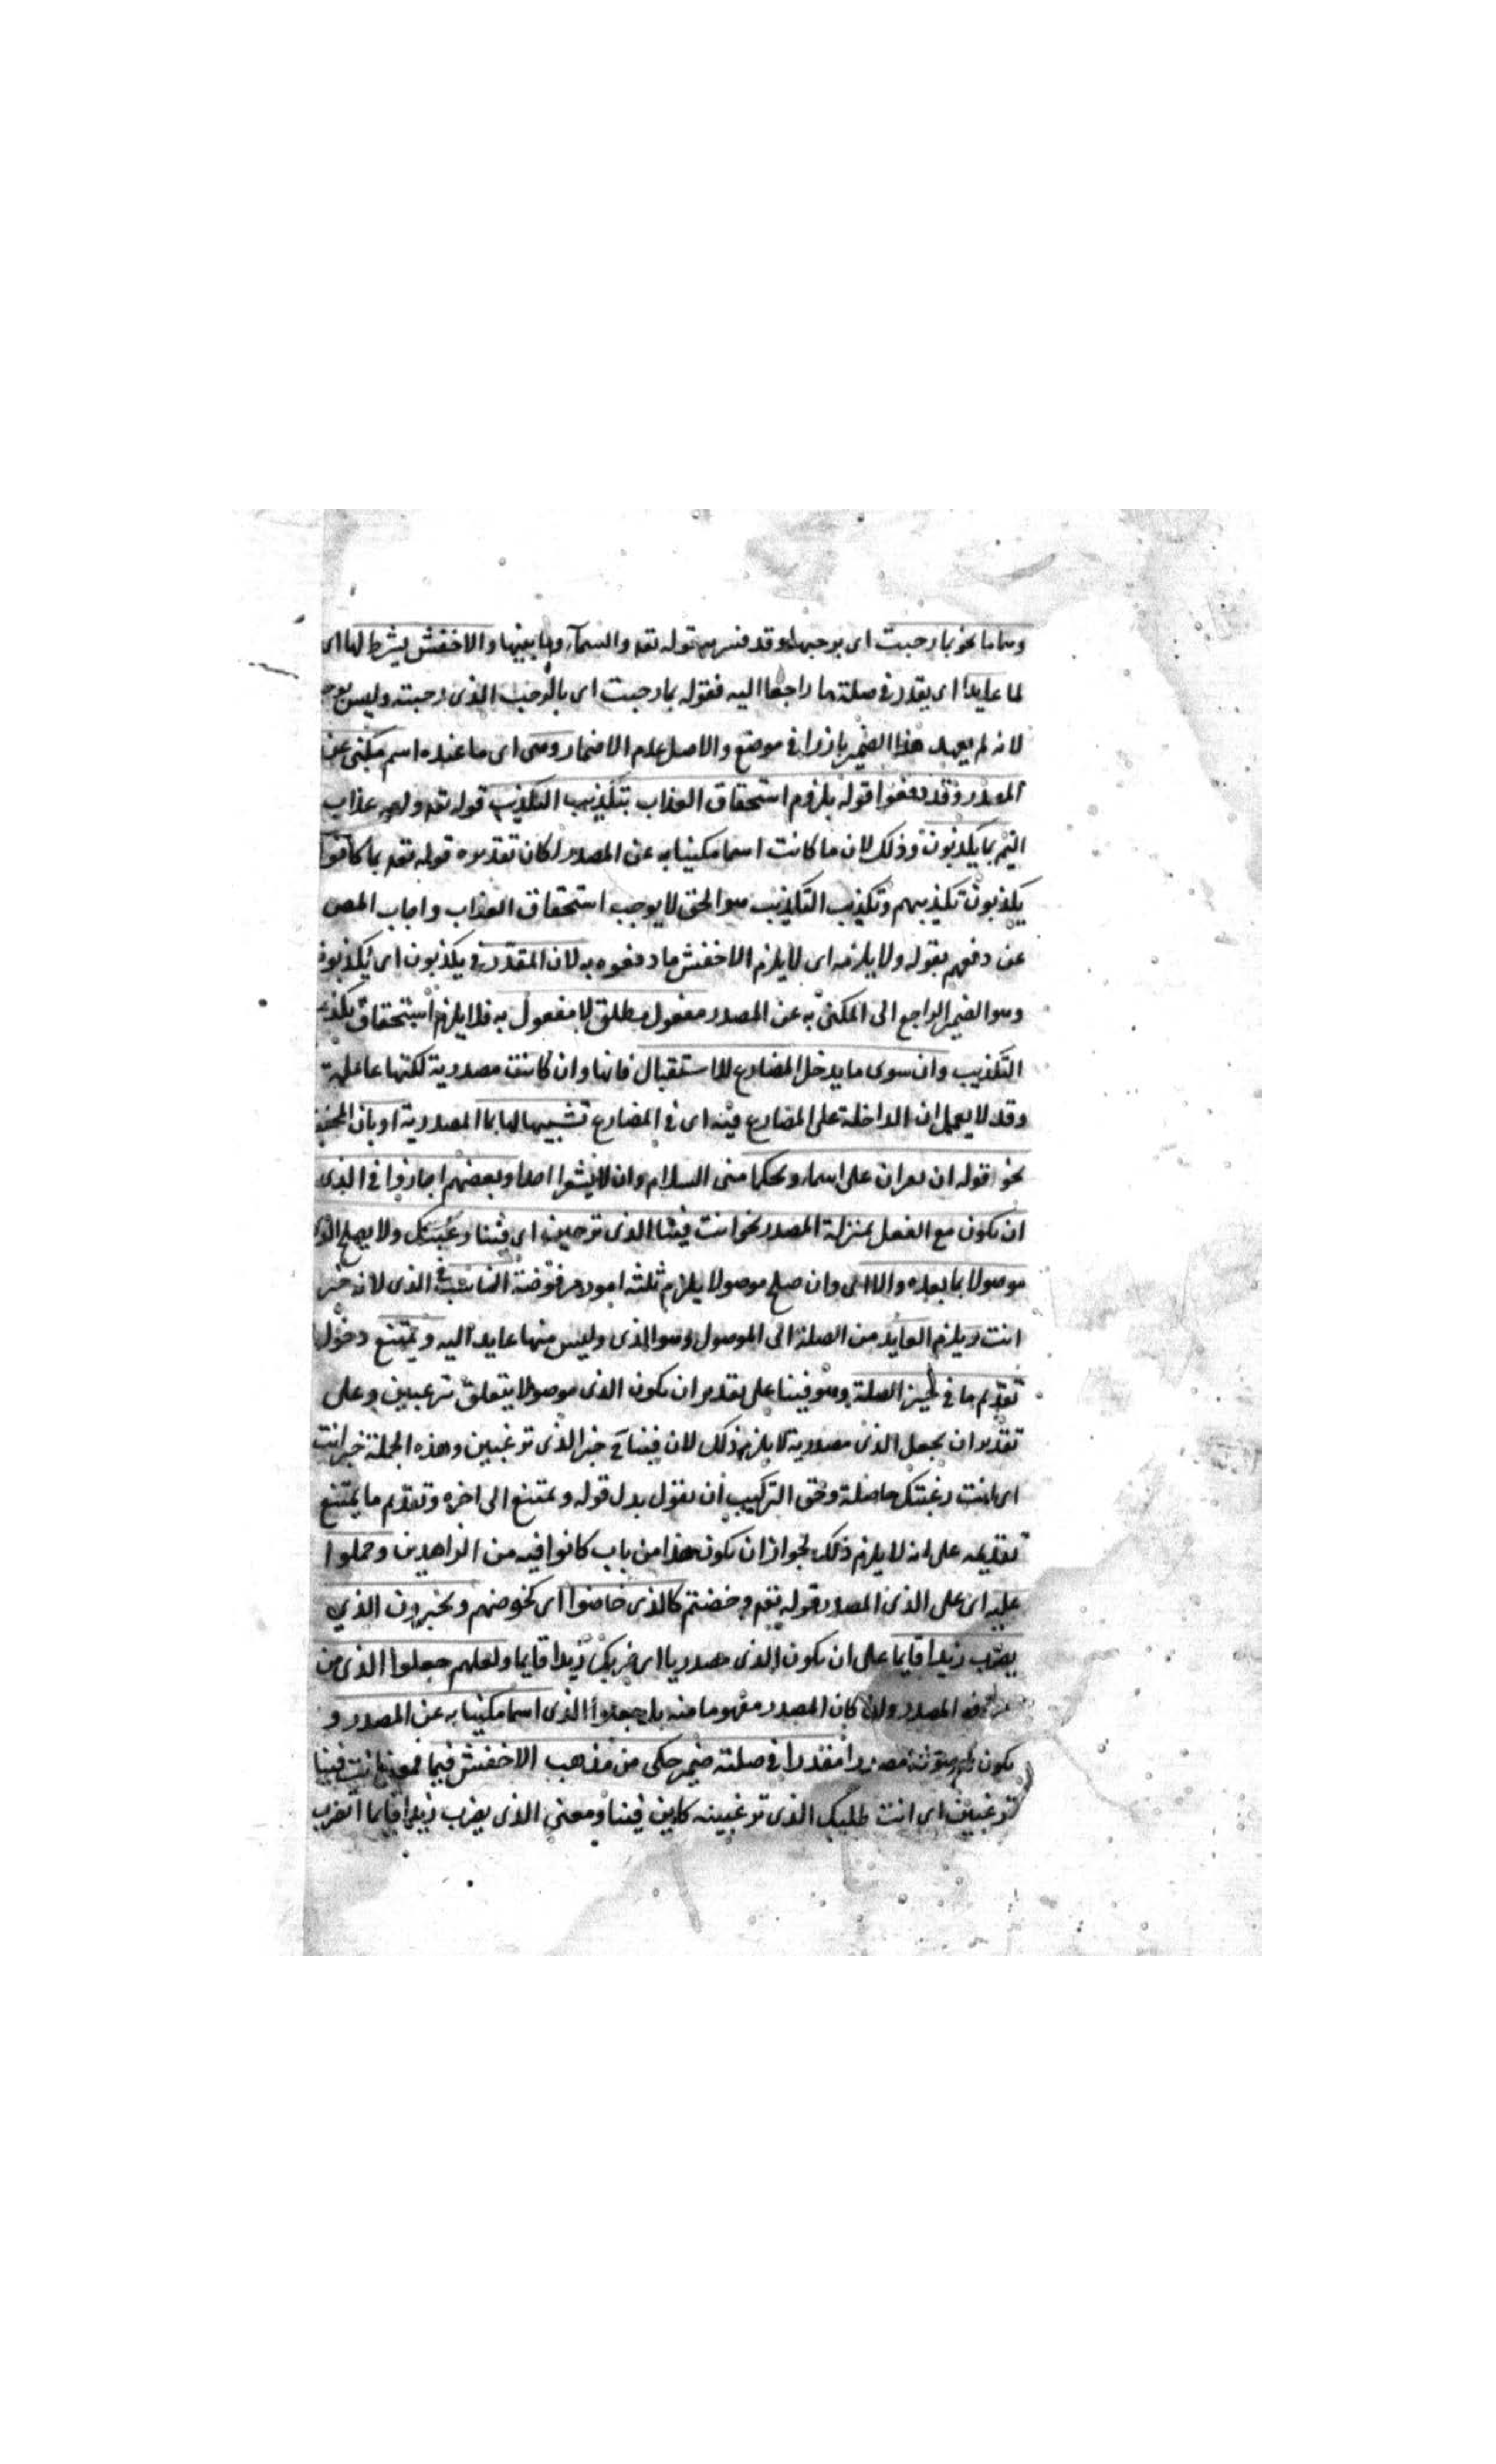 وساما نحو بما رحبت اى برحبها وقد فسر به قوله تعه والسمآء وما بنيها والاخفش يشرط لها اى
لما عايدا اى يقدر فى صلة ما راجعا اليه فقوله بما رحبت اى بالرحب الذى رحبته وليس بوجه
لانه لم يعهد هذا الضمير بارزا فى موضع والاصل عدم الاضمار وسى اى ما عنده اسم مكنى عن
المصدر وقد دفعوا قوله بلزوم استحقاق العذاب بتكذيب التكذيب قوله تعه ولهم عذاب
اليم بما يكذبون وذلك لان ما كانت اسما مكنيا به عن المصدر لكان تقديره قوله تعه بما كانوا
يكذبون تكذيبهم وتكذيب التكذيب هو الحق لا يوجب استحقاق العذاب واجاب المص
عن دفعهم بقوله ولا يلزمه اى لا يلزم الاخفش ما دفعوه به لان المقدر فى يكذبون اى يكذبونه
وهو الضمير الراجع الى المكنى به عن المصدر مفعول مطلق لا مفعول به فلا يلزم استحقاق تكذيب
التكذيب وان سوى ما يدخل المضارع للاستقبال فانها وان كانت مصدرية لكنها عاملة
وقد لا يعمل ان الداخلة على المضارع فيه اى فى المضارع تشبيها لها بما المصدرية او بان المخففة
نحو قوله ان تقران على اسماء ويحكما منى السلام وان لا تشعرا احدا وبعضهم اجازوا فى الذى
ان تكون مع الفعل بمنزلة المصدر نحو انت فينا الذى ترغبين اى فينا رغبتك ولا يصلح الذى
موصولا بما بعده والا اى وان صلح موصولا يلزم ثلثة امور مرفوضة التانيث فى الذى لانه خبر
انت ويلزم العايد من الصلة الى الموصول وهو الذى وليس منها عايد اليه ويمتنع دخول
تقديم ما فى حيز الصلة وهو فينا على تقدير ان تكون الذى موصولا يتعلق بترغبين وعلى
تقدير ان يجعل الذى مصدرية لا يلزم ذلك لان فينا ح خبر الذى ترغبين وهذه الجملة خبر انت
اى انت رغبتك حاصلة وحق التركيب ان تقول بدل قوله ويمتنع الى اخره وتقديم ما يمتنع
تقديمه على انه لا يلزم ذلك لجواز ان تكون هذا من باب كانوا فيه من الزاهدين وحملوا
عليه اى على الذى المصدر قوله تعه وخضتم كالذى خاضوا اى كخوضهم ويخبرون الذي
يضرب زيدا قايما على ان تكون الذى مصدريا اى ضربك زيدا قايما ولعلهم جعلوا الذى من
المصدر وان كان المصدر مفهوما منه بل جعلوا الذى اسما مكنيا به عن المصدر و
تكون مقدرا فى صلته ضمير حكى من مذهب الاخفش فيما فمعنى انت فينا
ترغبين اى انت طلبك الذى ترغبينه كاين فينا ومعنى الذى يضرب زيدا قايما الضرب